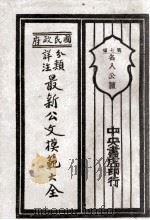 名人公牘
中央書店印行
國民政府
分類
詳注
最新公文模範大全